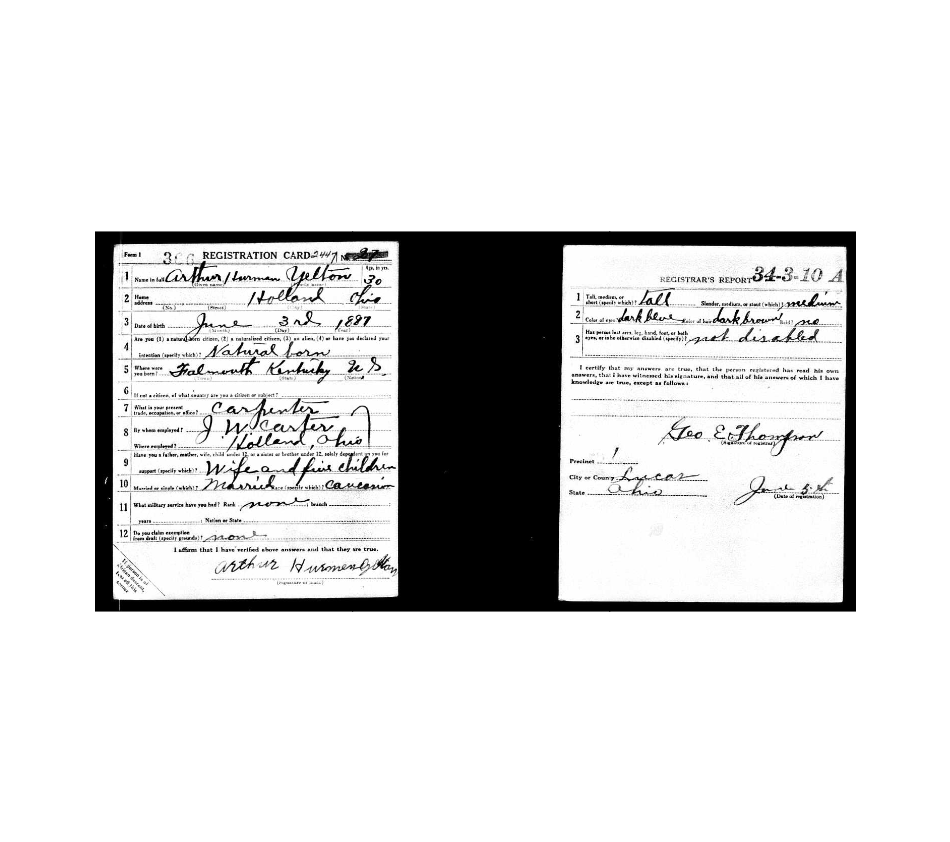 Form 1 366 REGISTRATION CARD 2447 No. 27
1 Name in full Arthur Hurman Yelton Age, in yrs. 30
(Given name) (Family name)
2 Home address Holland Ohio
(No.) (Street) (City) (State)
3 Date of birth June 3rd 1887
(Month) (Day) (Year)
Are you (1) a natural-born citizen, (2) a naturalized citizen, (3) an alien, (4) or have you declared your
4 intention (specify which)? Natural born
5 Where were you born? Falmouth Kentucky U S.
(Town) (State) (Nation)
6 If not a citizen, of what country are you a citizen or subject?
7 What is your present trade, occupation, or office? Carpenter
8 By whom employed? J W. Carter
Where employed? Holland, Ohio
Have you a father, mother, wife, child under 12, or a sister or brother under 12, solely dependent on you for
9 support (specify which)? Wife and five children
10 Married or single (which)? Married Race (specify which)? Caucasian
11 What military service have you had? Rank none ; branch
years ; Nation or State
12 Do you claim exemption from draft (specify grounds)? none
I affirm that I have verified above answers and that they are true.
Arthur Hurmen Yelton
(Signature or mark)
If person is of African descent, tear off this corner
REGISTRAR'S REPORT 34-3-10 A
1 Tall, medium, or short (specify which)? Tall Slender, medium, or stout (which)? medium
2 Color of eyes dark blue Color of hair dark brown Bald? no
3 Has person lost arm, leg, hand, foot, or both eyes, or is he otherwise disabled (specify)? not disabled
I certify that my answers are true, that the person registered has read his own
answers, that I have witnessed his signature, and that all of his answers of which I have
knowledge are true, except as follows:
Geo. E. Thompson
(Signature of registrar)
Precinct 1
City or County Lucas
State Ohio June 5th
(Date of registration)